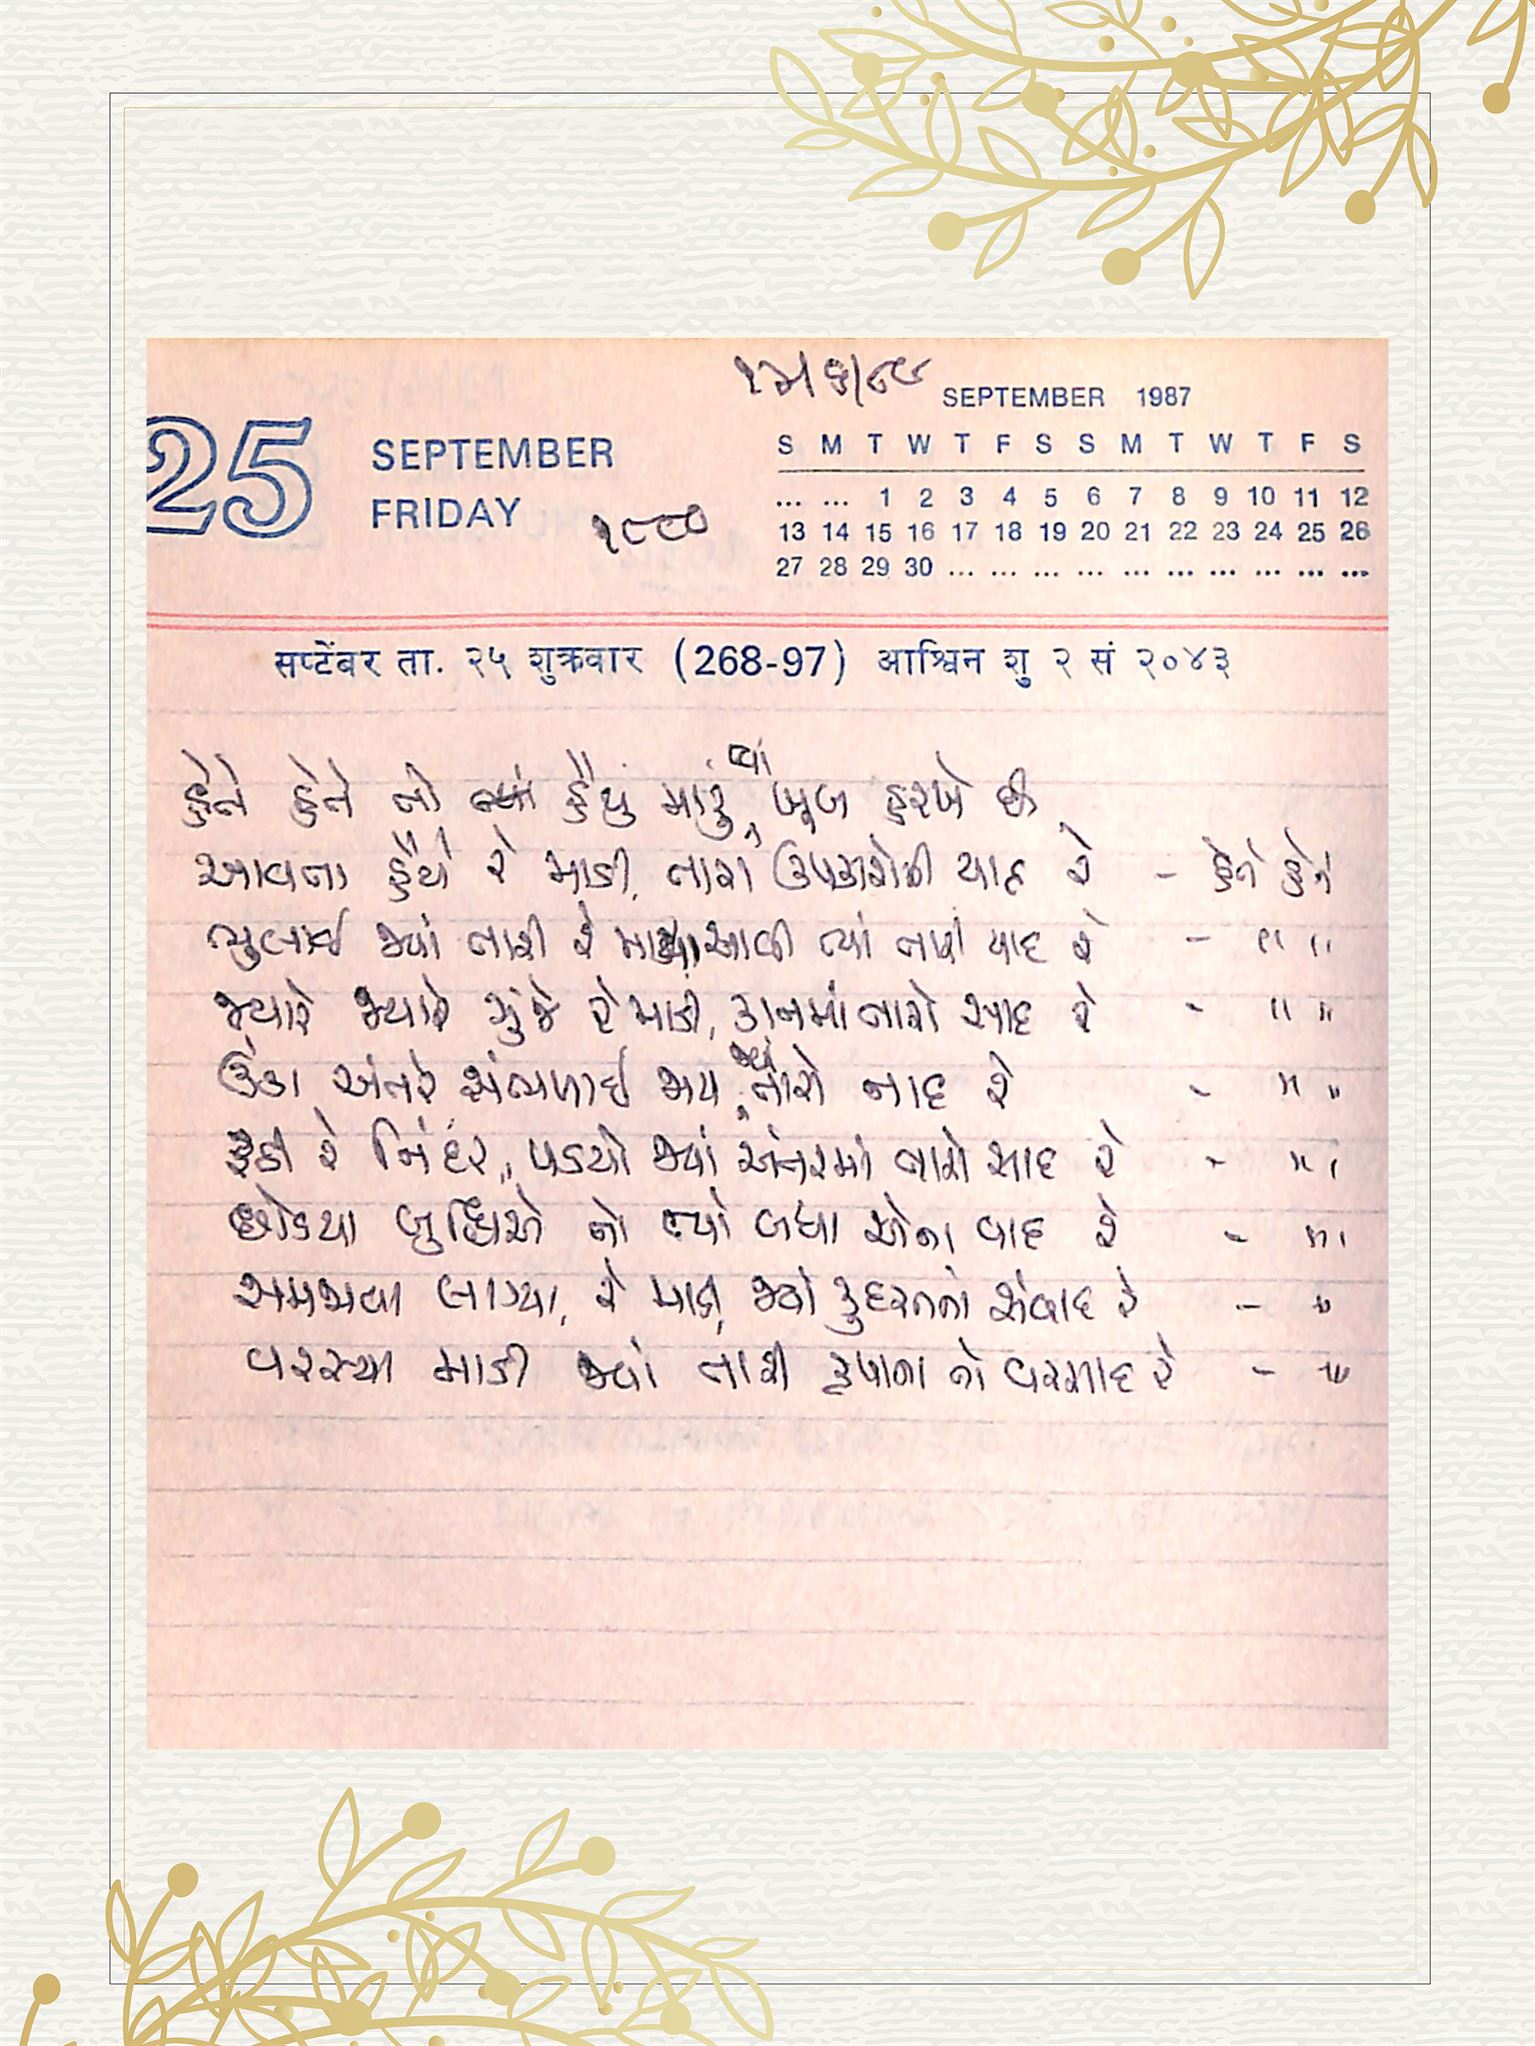 ૧૭/૬/૮૯
SEPTEMBER 1987
25 SEPTEMBER
FRIDAY ૧૮૮૦
S M T W T F S S M T W T F S
... ... 1 2 3 4 5 6 7 8 9 10 11 12
13 14 15 16 17 18 19 20 21 22 23 24 25 26
27 28 29 30 ... ... ... ... ... ... ... ... ... ...
सप्टेंबर ता. २५ शुक्रवार (268-97) आश्विन शु २ सं २०४३
ત્યાં
હૈયું મારું ખૂબ હરખે છે
આવતા હૈયે રે માડી, તારા ઉપકારોની યાદ રે -
ભુલાઈ જ્યાં તારી રે માયા, આવી ત્યાં તારી યાદ રે - " "
જ્યારે જ્યારે ગુંજે રે માડી, કાનમાં તારો સાદ રે - " "
જ્યાં
ઉંડા અંતરે સંભળાઈ જાય તારો નાદ રે - " "
રે નિંદર, પડયો જ્યાં અંતરમાં તારો સાદ રે - " "
છોડયા બુદ્ધિએ તો ત્યાં બધા એના વાદ રે - " "
સમજાવા લાગ્યા, રે માડી, જ્યાં કુદરતનો સંવાદ રે - "
વરસ્યા માડી જ્યાં તારી કૃપાના તો વરસાદ રે - "